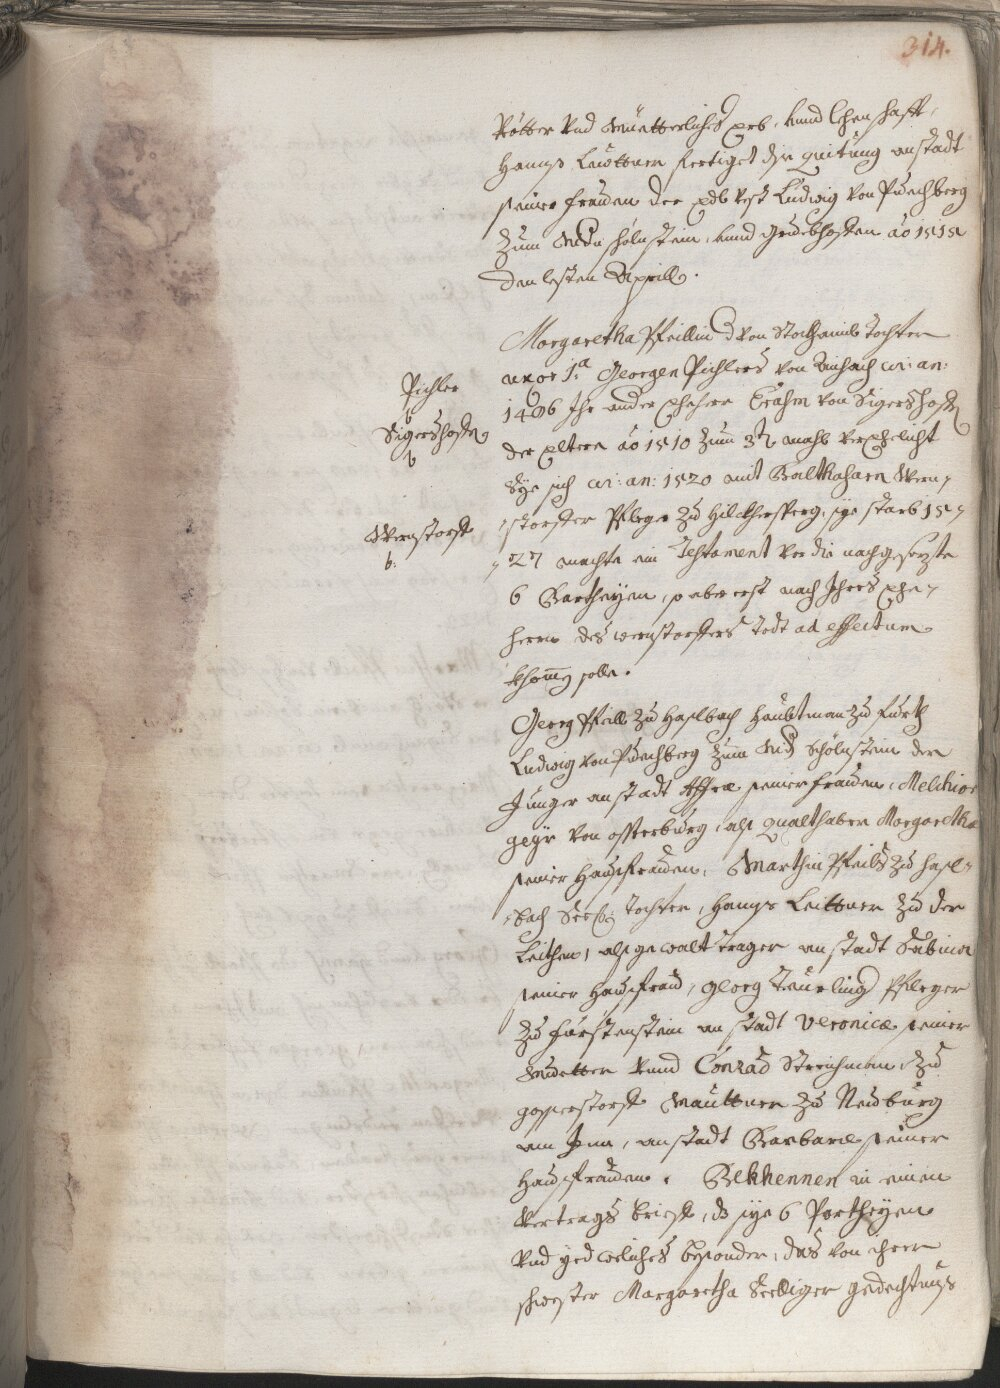 314.
Vötter vnd Müetterliches erb, vnnd lehenschafft,
Hannss Leüttner fertiget die quitung anstadt
seiner frauen der Edl vest Ludwig von Puechberg
zum Wildn stein, vnnd
den lesten Aprill.
Margaretha Pfeillin von Stockhaimb Tochter
uxor 1.a Georgen Pichlers von Ainhach circa an:
1486 Ihr ander eheherr Erasm von Sigershofen
der eltere ao 1510 zum 3tn mahl verehelicht
Sye sich circa an: 1520 mit Balthasarn Wern-
storffer Pfleger zu Hilckhersperg, sye starb 15-
27 machte ein Testament vor die nachgesezte
6 Partheyen, so aber erst nach Ihres ehe-
herrn des wernstorffers todt ad effectum
khomen solle.
Pichler
Sigershofen
Wernstorff
Georg Pfeill zu Haslbach Haubtman zu Furth
Ludwig von Puechberg zum Wild Schönstein der
Junger anstadt Affrae seiner frauen, Melchior
geyr von Osterburg, als gwalthaber Margaretha
seiner Hausfrauen, Marthin Pfeills zu Hasl-
bach Seel: Tochter, Hanns Leittner zu der
Leithen, als gewalt trager anstadt Sabina
seiner Hausfrau, Georg Teurling Pfleger
zu Fürstenstein anstadt Veronicae seiner
Muetter vnnd Conrad Streichman zu
gopperstorff Mauttner zu Neuburg
am Inn, anstadt Barbara seiner
Hausfrauen. Bekhennen in einen
Vertrags brieff, ds sye 6 Partheyen
vnd yedweliches besonder, das von ihrer
schwester Margaretha Seeliger gedechtnus